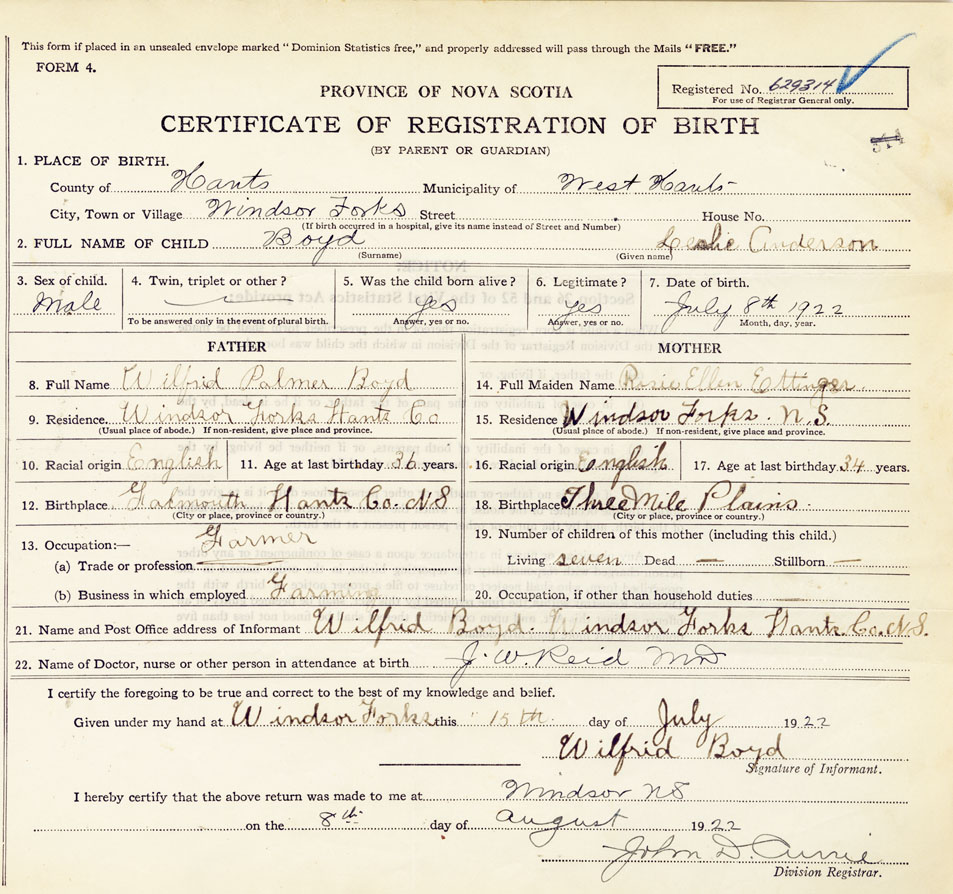 This form if placed in an unsealed envelope marked "Dominion Statistics free," and properly addressed will pass through the Mails "FREE."
FORM 4.
Registered No. 629314
For use of Registrar General only.
PROVINCE OF NOVA SCOTIA
CERTIFICATE OF REGISTRATION OF BIRTH
(BY PARENT OR GUARDIAN)
1. PLACE OF BIRTH.
County of Hants Municipality of West Hants
City, Town or Village Windsor Forks Street House No.
(If birth occurred in a hospital, give its name instead of Street and Number)
2. FULL NAME OF CHILD Boyd Leslie Anderson
(Surname) (Given name)
3. Sex of child. 4. Twin, triplet or other? 5. Was the child born alive? 6. Legitimate? 7. Date of birth.
Male Yes Yes July 8th 1922
To be answered only in the event of plural birth. Answer, yes or no. Answer, yes or no. Month, day, year.
FATHER MOTHER
8. Full Name Wilfrid Palmer Boyd 14. Full Maiden Name Rosie Ellen Ettinger
9. Residence. Windsor Forks Hants Co 15. Residence Windsor Forks. N.S.
(Usual place of abode.) If non-resident, give place and province. (Usual place of abode.) If non-resident, give place and province.
10. Racial origin English 11. Age at last birthday 36 years. 16. Racial origin English 17. Age at last birthday 34 years.
12. Birthplace Falmouth Hants Co. N S 18. Birthplace Three Mile Plains.
(City or place, province or country.) (City or place, province or country.)
13. Occupation:— Farmer 19. Number of children of this mother (including this child.)
(a) Trade or profession Living seven Dead — Stillborn —
(b) Business in which employed Farming 20. Occupation, if other than household duties
21. Name and Post Office address of Informant Wilfrid Boyd. Windsor Forks Hants Co. N.S.
22. Name of Doctor, nurse or other person in attendance at birth J. W. Reid MD
I certify the foregoing to be true and correct to the best of my knowledge and belief.
Given under my hand at Windsor Forks this 15th day of July 1922
Wilfrid Boyd
Signature of Informant.
I hereby certify that the above return was made to me at Windsor N S
on the 8th day of August 1922
John D. Currie
Division Registrar.